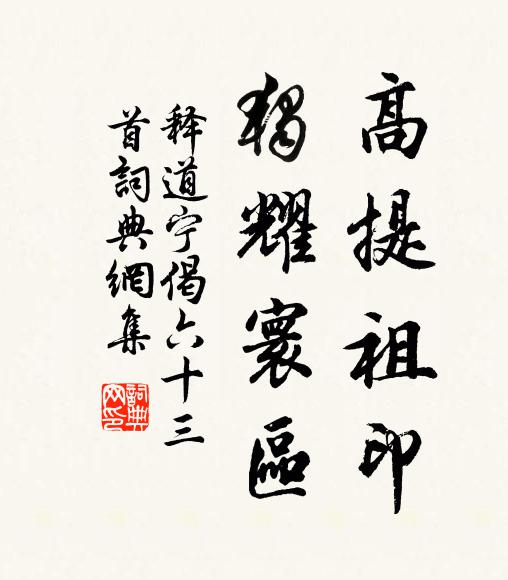 高提祖印
獨耀寰區
释道宁偈六十三
首詞典網集
詞典網印